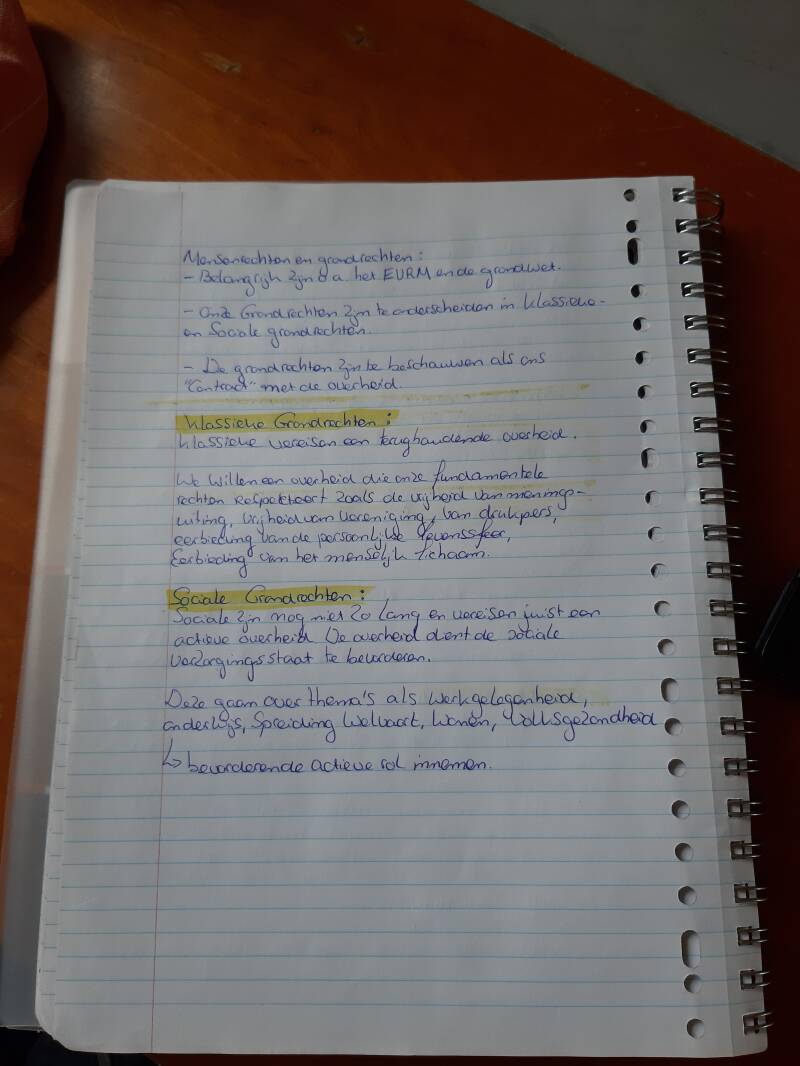 Mensenrechten en grondrechten:
- Belangrijk zijn o.a het EVRM en de grondwet.
- Onze Grondrechten zijn te onderscheiden in klassieke-
en Sociale grondrechten.
- De grondrechten zijn te beschouwen als ons
"Contract" met de overheid.
Klassieke Grondrechten:
Klassieke vereisen een terughoudende overheid.
We willen een overheid die onze fundamentele
rechten respekteert zoals de vrijheid van menings-
uiting, vrijheid van vereniging, van drukpers,
eerbieding van de persoonlijke levenssfeer,
Eerbieding van het menselijk lichaam.
Sociale Grondrechten:
Sociale zijn nog niet zo lang en vereisen juist een
actieve overheid. De overheid dient de sociale
verzorgingsstaat te bevorderen.
Deze gaan over thema's als werkgelegenheid,
onderwijs, Spreiding Welvaart, Wonen, Volksgezondheid
↳ bevorderende actieve rol innemen.